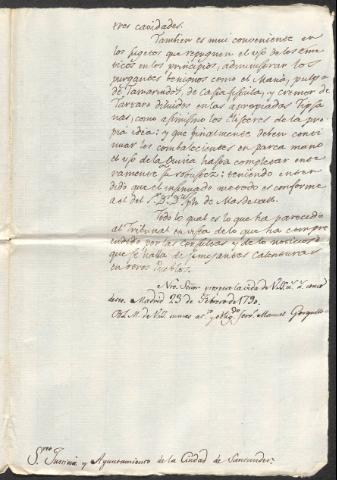 tres cavidades.
Tambien es mui conveniente en
los sugetos que repugnen el uso de los eme-
ticos en los principios, administrar los
purgantes benignos como el Maná, pulpa
de Tamarindos, de casia fistula, y cremor de
Tartaro diluidos en las apropiadas Tipsa
nas, como asimismo los Clisteres de la pro
pia idea: y que finalmente deben conti
nuar los combalecientes en parca mano
el uso de la Quina hasta completar ente
ramente su robustez: teniendo enten
dido que el insinuado metodo es conforme
al del Sr. Dr. Dn. Jph. de Masdevall.
Todo lo qual es lo que ha parecido
al Tribunal en vista de lo que ha compre
endido por las consultas y de lo noticioso
que se halla de semejantes calenturas
en otros Pueblos.
Nro. Señor prospere la vida de V.
Madrid 23 de Febrero de 1790.
B. L. M. de V. Manuel
Sres. Justicia y Ayuntamiento de la Ciudad de Santander.